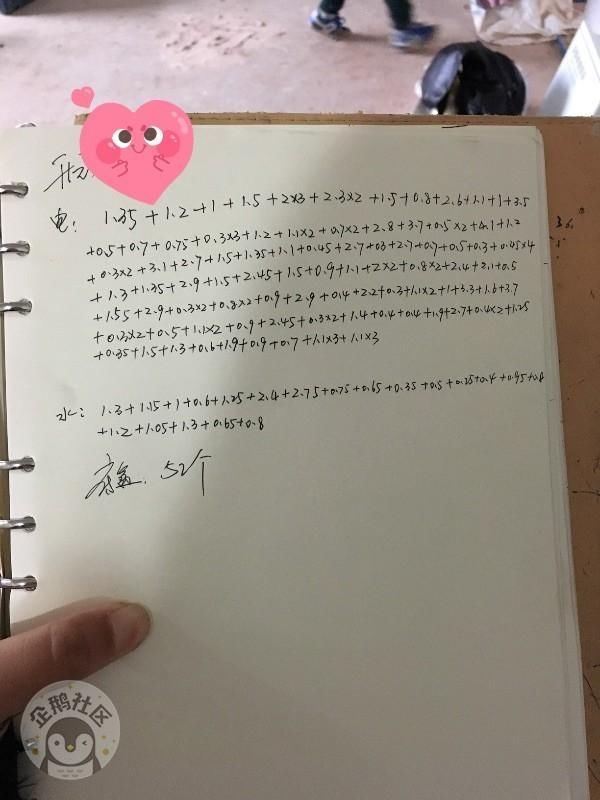 电: 1.35+1.2+1+1.5+2x3+2.3x2+1.5+0.8+2.6+1.1+1+3.5
+0.5+0.7+0.75+0.3x3+1.2+1.1x2+0.7x2+2.8+3.7+0.5x2+4.1+1.2
+0.3x2+3.1+2.7+1.5+1.35+1.1+0.45+2.7+03+2.7+0.7+0.5+0.3+0.45x4
+1.3+1.35+2.9+1.5+2.45+1.5+0.9+1.1+2x2+0.8x2+2.4+2.1+0.5
+1.55+2.9+0.3x2+0.8x2+0.9+2.9+0.4+2.2+0.3+1.1x2+1+3.3+1.6+3.7
+0.3x2+0.5+1.1x2+0.9+2.45+0.3x2+1.4+0.4+0.4+1.9+2.7+0.4x2+1.25
+0.35+1.5+1.3+0.6+1.9+0.9+0.7+1.1x3+1.1x3
水: 1.3+1.15+1+0.6+1.25+2.4+2.75+0.75+0.65+0.35+0.5+0.35+0.4+0.95+0.8
+1.2+1.05+1.3+0.65+0.8
52个
企鹅社区